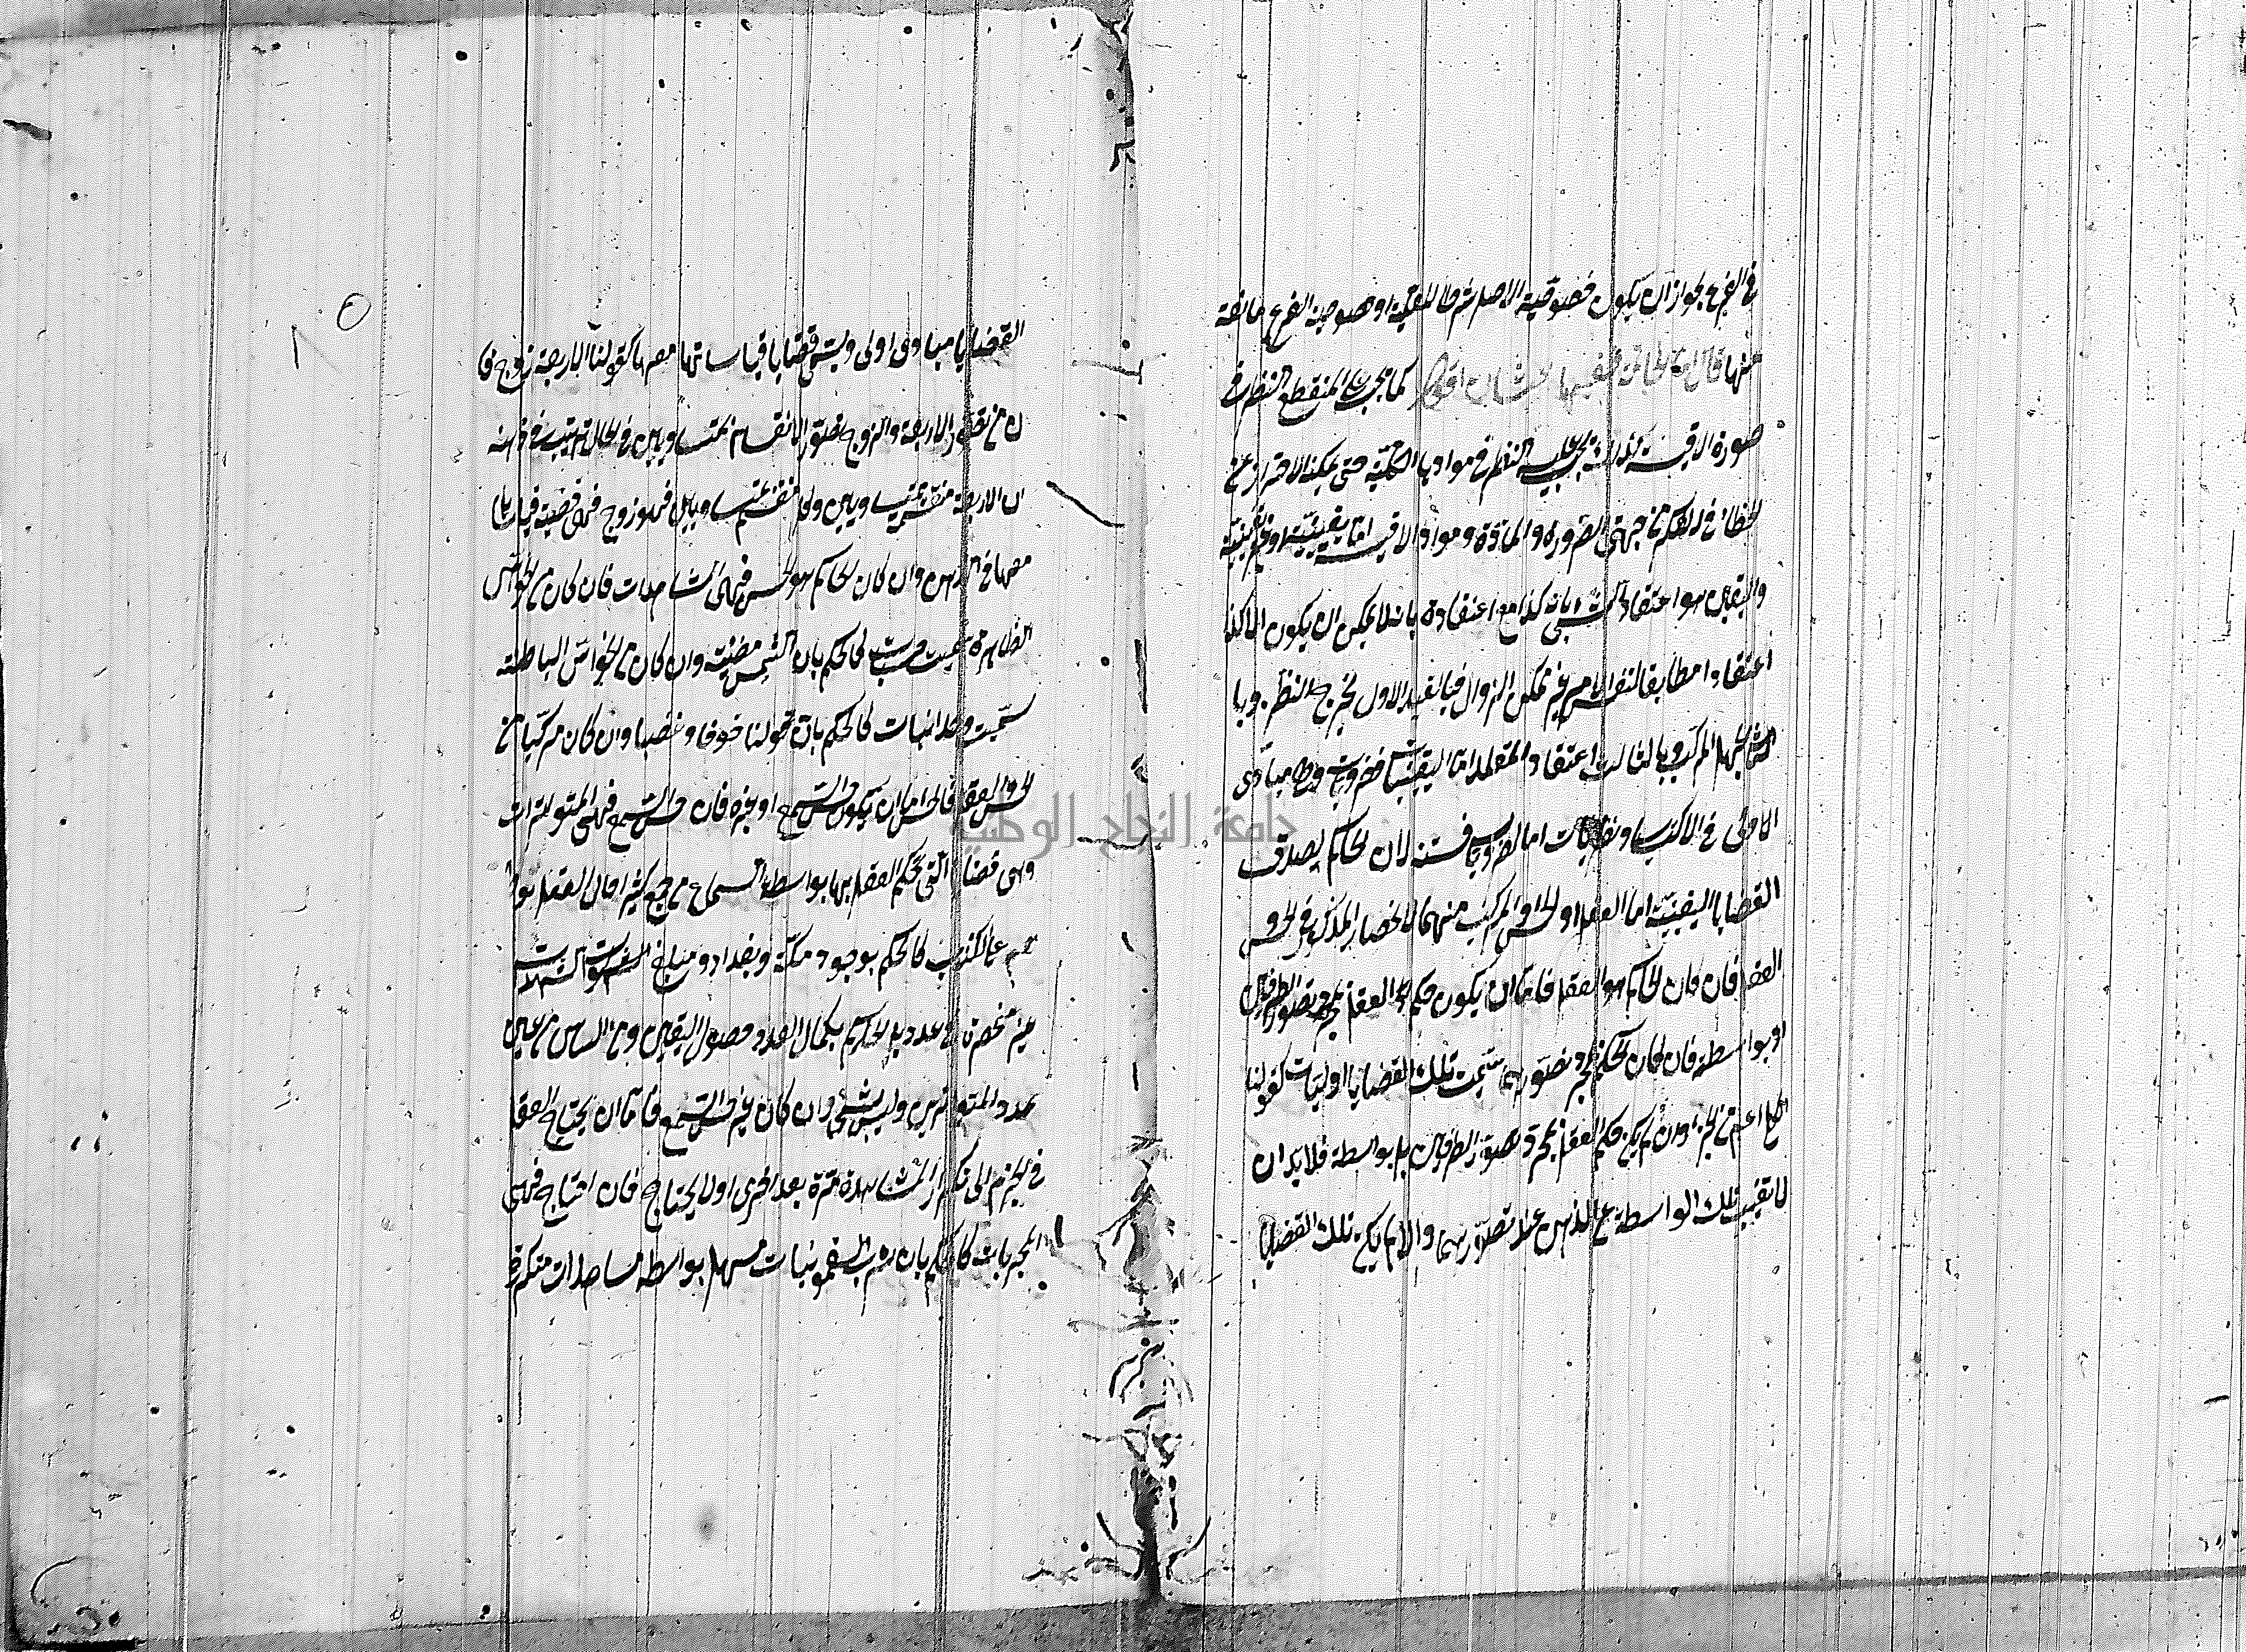 في الفرع لجواز ان يكون خصوصية الاصل شرطا للعلية او خصوصية الفرع مانعة
منها قال الخاتمة ففيها بحثان اقول كما يجب على المنطقي النظر في
صورة الاقيسة كذلك يجب عليه النظر في موادها الكلية حتى يمكنه الاحتراز عن
الخطاء في الفكر من جهتي الصورة والمادة ومواد الاقيسة اما يقينية او غير يقينية
واليقين هو اعتقاد الشيء بانه كذا مع اعتقاده بانه لا يمكن ان يكون الا كذا
اعتقادا مطابقا لنفس الامر غير ممكن الزوال فبالقيد الاول يخرج النظر وبا
لثاني الجهل المركب وبالثالث اعتقاد المقلد اما اليقينيات فضروريات وهي مبادي
الاولى في الاكتساب ونظريات اما الضروريات فستة لان الحاكم بصدق
القضايا اليقينية اما العقل او الحس او المركب منهما لانحصار المدرك في الحس
العقل فان كان الحاكم هو العقل فاما ان يكون حكم العقل بمجرد تصور الطرفين
او بواسطة فان كان الحكم بمجرد تصورهما سميت تلك القضايا اوليات كقولنا
الكل اعظم من الجزء وان لم يكن حكم العقل بمجرد تصور الطرفين بل بواسطة فلا بد ان
لا تغيب تلك الواسطة عن الذهن عند تصورهما والا لم يكن تلك القضايا
القضايا مبادي اولى ويسمى قضايا قياساتها معها كقولنا الاربعة زوج فا
ن من تصور الاربعة والزوج تصور الانقسام بمتساويين في الحال ترتب في ذهنه
ان الاربعة منقسمة بمتساويين وكل منقسم بمتساويين فهو زوج فهي قضية قياسها
معها في الذهن وان كان الحاكم هو الحس فهي المشاهدات فان كان من الحواس
الظاهرة سميت حسيات كالحكم بان الشمس مضيئة وان كان من الحواس الباطنة
سميت وجدانيات كالحكم بان لنا خوفا وغضبا وان كان مركبا من
الحس والعقل فالحس اما ان يكون حس السمع او غيره فان كان حس السمع فهي المتواترات
وهي قضايا التي يحكم العقل بها بواسطة السماع من جمع كثير احال العقل تواطؤ
هم على الكذب كالحكم بوجود مكة وبغداد ومبلغ الشهادات
غير منحصرة في عدد بل الحاكم بكمال العدد حصول اليقين ومن الناس من عين
عدد المتواترين وليس بشيء وان كان غير حس السمع فاما ان يحتاج العقل
في الجزم الى تكرار المشاهدة مرة بعد اخرى او لا يحتاج فان احتاج فهي
المجربات كالحكم بان شرب السقمونيا مسهل بواسطة مشاهدات متكررة
جامعة النجاح الوطنية